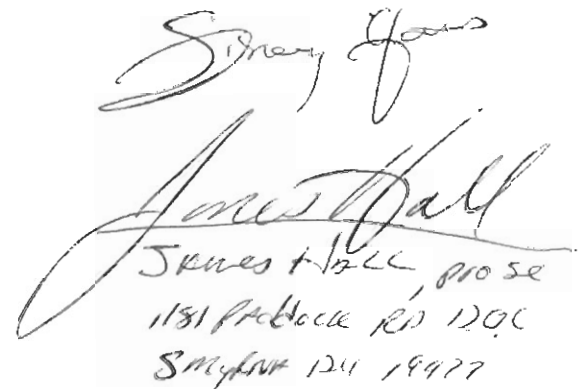 Sincerely Yours
James Hall
James Hall, pro se
1181 Paddock RD DOC
Smyrna DE 19977